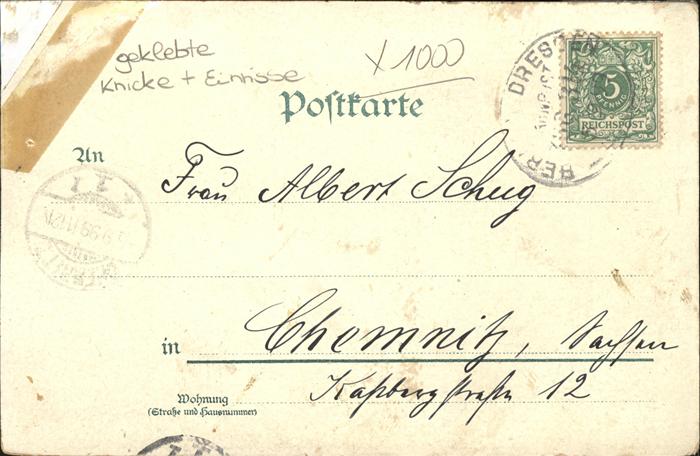 geklebte
Knicke + Einrisse
x 1000
Postkarte
DRESDEN
BER
5
PFENNIG
REICHSPOST
An
Frau Albert Schug
in Chemnitz, Sachsen
Wohnung
(Straße und Hausnummer)
Kaßbergstraße 12